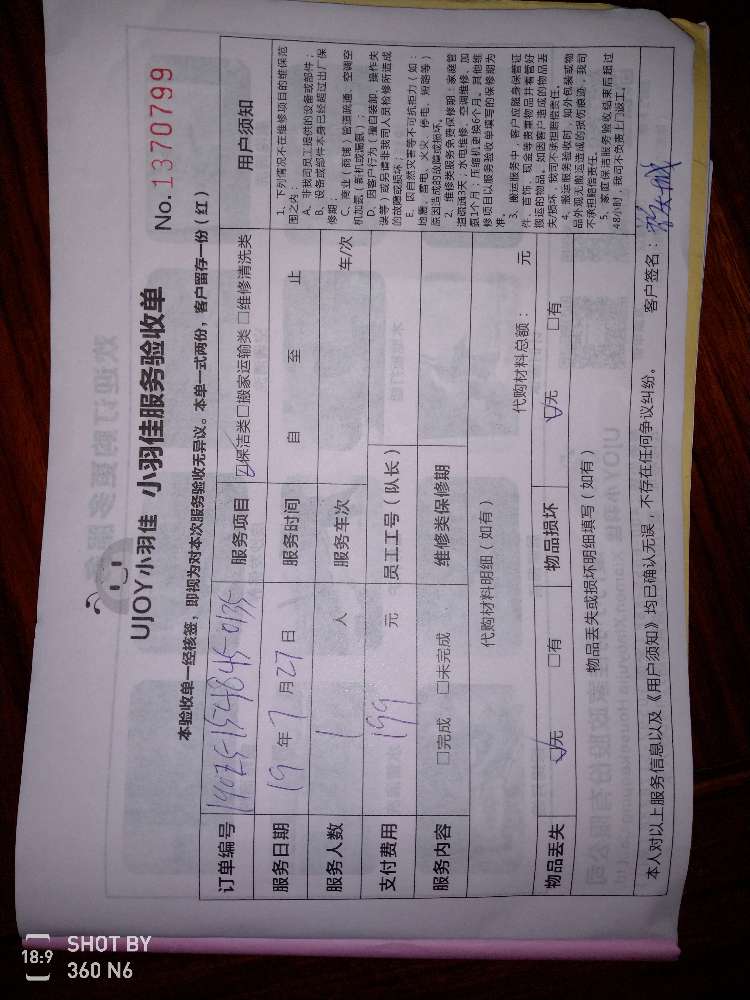 UJOY小羽佳 小羽佳服务验收单
No.1370799
本验收单一经核签，即视为对本次服务验收无异议。本单一式两份，客户留存一份（红）
订单编号 服务项目 ☑保洁类□搬家运输类 □维修清洗类 用户须知
服务日期 19 年 7 月 27 日 服务时间 自 至 止
服务人数 1 人 服务车次 车/次
支付费用 199 元 员工工号（队长）
服务内容 □完成 □未完成 维修类保修期
代购材料明细（如有） 代购材料总额： 元
物品丢失 ☑无 □有 物品损坏 ☑无 □有
物品丢失或损坏明细填写（如有）
1、下列情况不在维修项目的维保范
围之内：
A、非我司员工提供的设备或部件；
B、设备或部件本身已经超过出厂保
修期；
C、商业（商铺）管道疏通、空调空
机加氨（新机或漏氨）；
D、因客户行为（擅自装卸、操作失
误等）或另请非我司人员检修所造成
的故障或损坏；
E、因自然灾害等不可抗拒力（如：
地震、雷电、火灾、停电、短路等）
原因造成的故障或损坏。
2、维修类服务免费保修期：家庭管
道疏通5天；水电维修、空调维修、加
氨1个月；压缩机更换6个月。其他维
修项目以服务验收单填写的保修期为
准。
3、搬运服务中，客户应随身保管证
件、首饰、现金等贵重物品并看管好
搬运的物品。如因客户造成的物品丢
失/损坏，我司不承担赔偿责任。
4、搬运服务验收时，如外包装或物
品外观无搬运造成的损伤痕迹，我司
不承担赔偿责任。
5、家庭保洁服务验收结束后超过
48小时，我司不负责上门返工。
本人对以上服务信息以及《用户须知》均已确认无误，不存在任何争议纠纷。 客户签名：
18:9 SHOT BY
360 N6